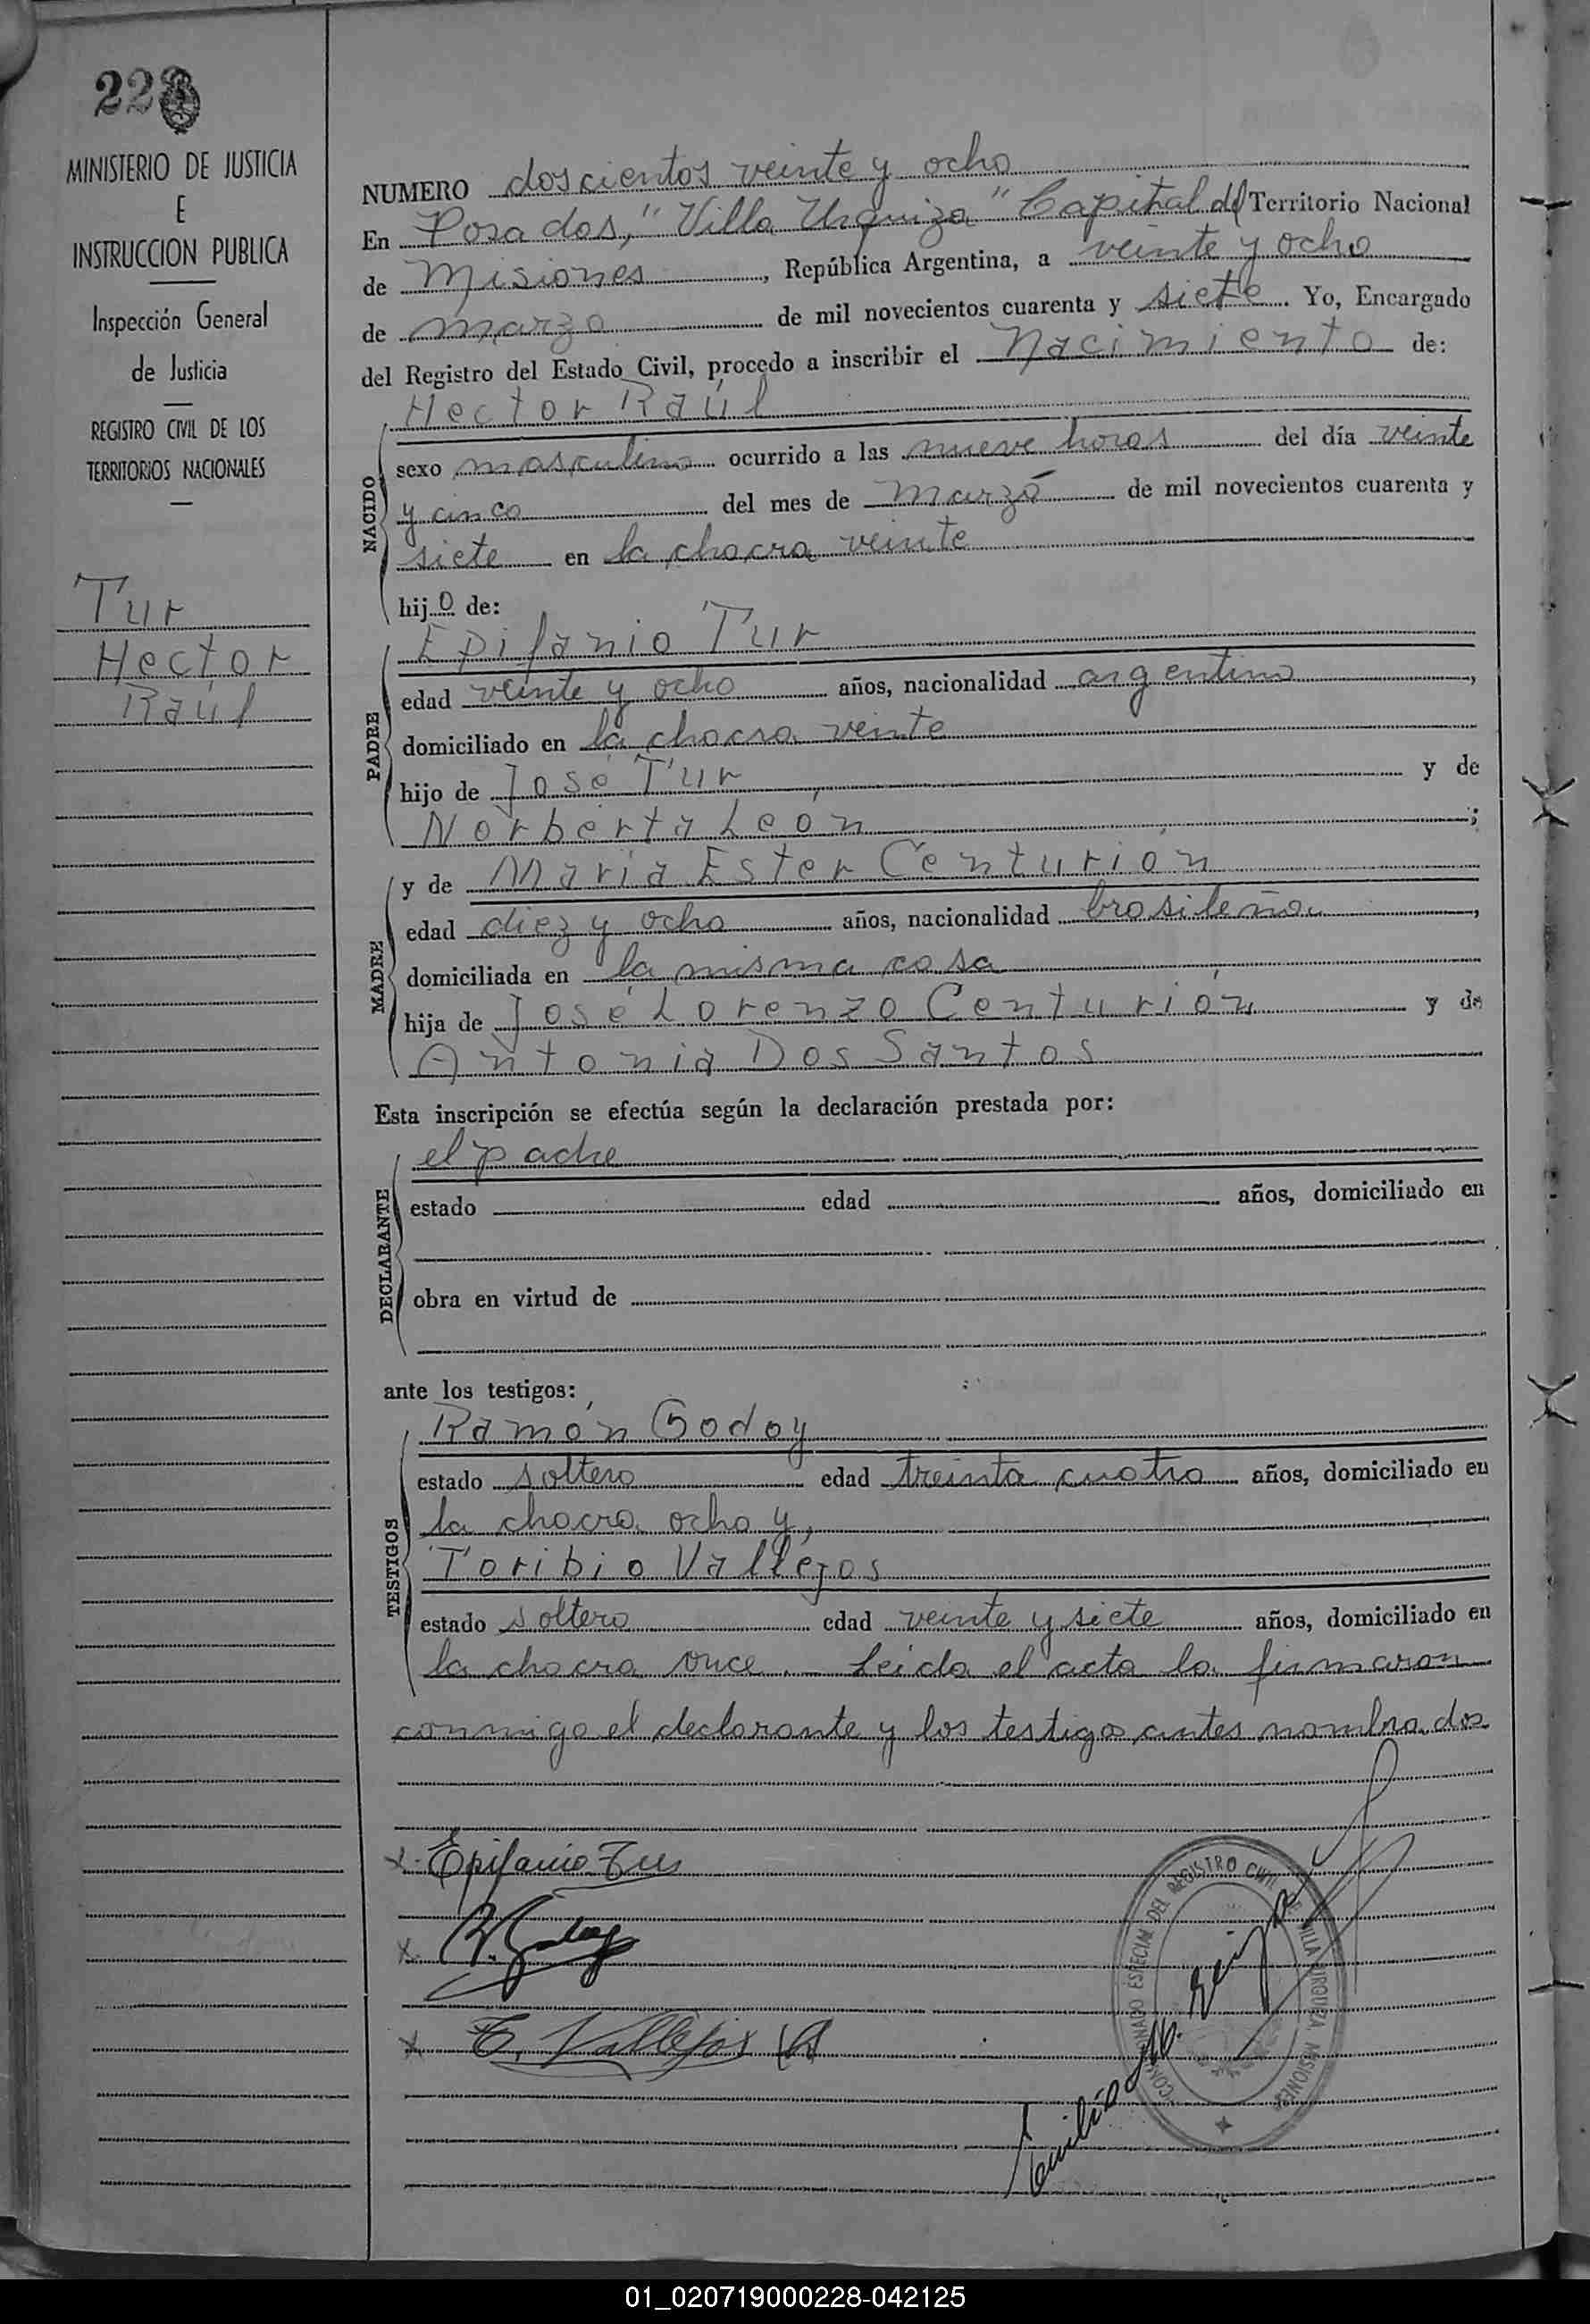 228
MINISTERIO DE JUSTICIA
E
INSTRUCCION PUBLICA
Inspección General
de Justicia
REGISTRO CIVIL DE LOS
TERRITORIOS NACIONALES
Tur
Hector
Raúl
NUMERO doscientos veinte y ocho
En Posadas, "Villa Urquiza" Capital del Territorio Nacional
de Misiones, República Argentina, a veinte y ocho
de marzo de mil novecientos cuarenta y siete. Yo, Encargado
del Registro del Estado Civil, procedo a inscribir el Nacimiento de:
NACIDO
Hector Raúl
sexo masculino ocurrido a las nueve horas del día veinte
y cinco del mes de marzo de mil novecientos cuarenta y
siete en la chacra veinte
hijo de:
PADRE
Epifanio Tur
edad veinte y ocho años, nacionalidad argentino,
domiciliado en la chacra veinte
hijo de José Tur y de
Norberta León;
MADRE
y de Maria Ester Centurión
edad diez y ocho años, nacionalidad brasileña,
domiciliada en la misma casa
hija de José Lorenzo Centurión y de
Antonia Dos Santos
Esta inscripción se efectúa según la declaración prestada por:
DECLARANTE
el padre
estado edad años, domiciliado en
obra en virtud de
ante los testigos:
TESTIGOS
Ramón Godoy
estado soltero edad treinta cuatro años, domiciliado en
la chacra ocho y,
Toribio Vallejos
estado soltero edad veinte y siete años, domiciliado en
la chacra once. Leida el acta la firmaron
conmigo el declarante y los testigos antes nombrados
x Epifanio Tur
x R. Godoy
x T. Vallejos
COMISIONADO ESPECIAL DEL REGISTRO CIVIL DE VILLA URQUIZA MISIONES
Emilio
01_020719000228-042125